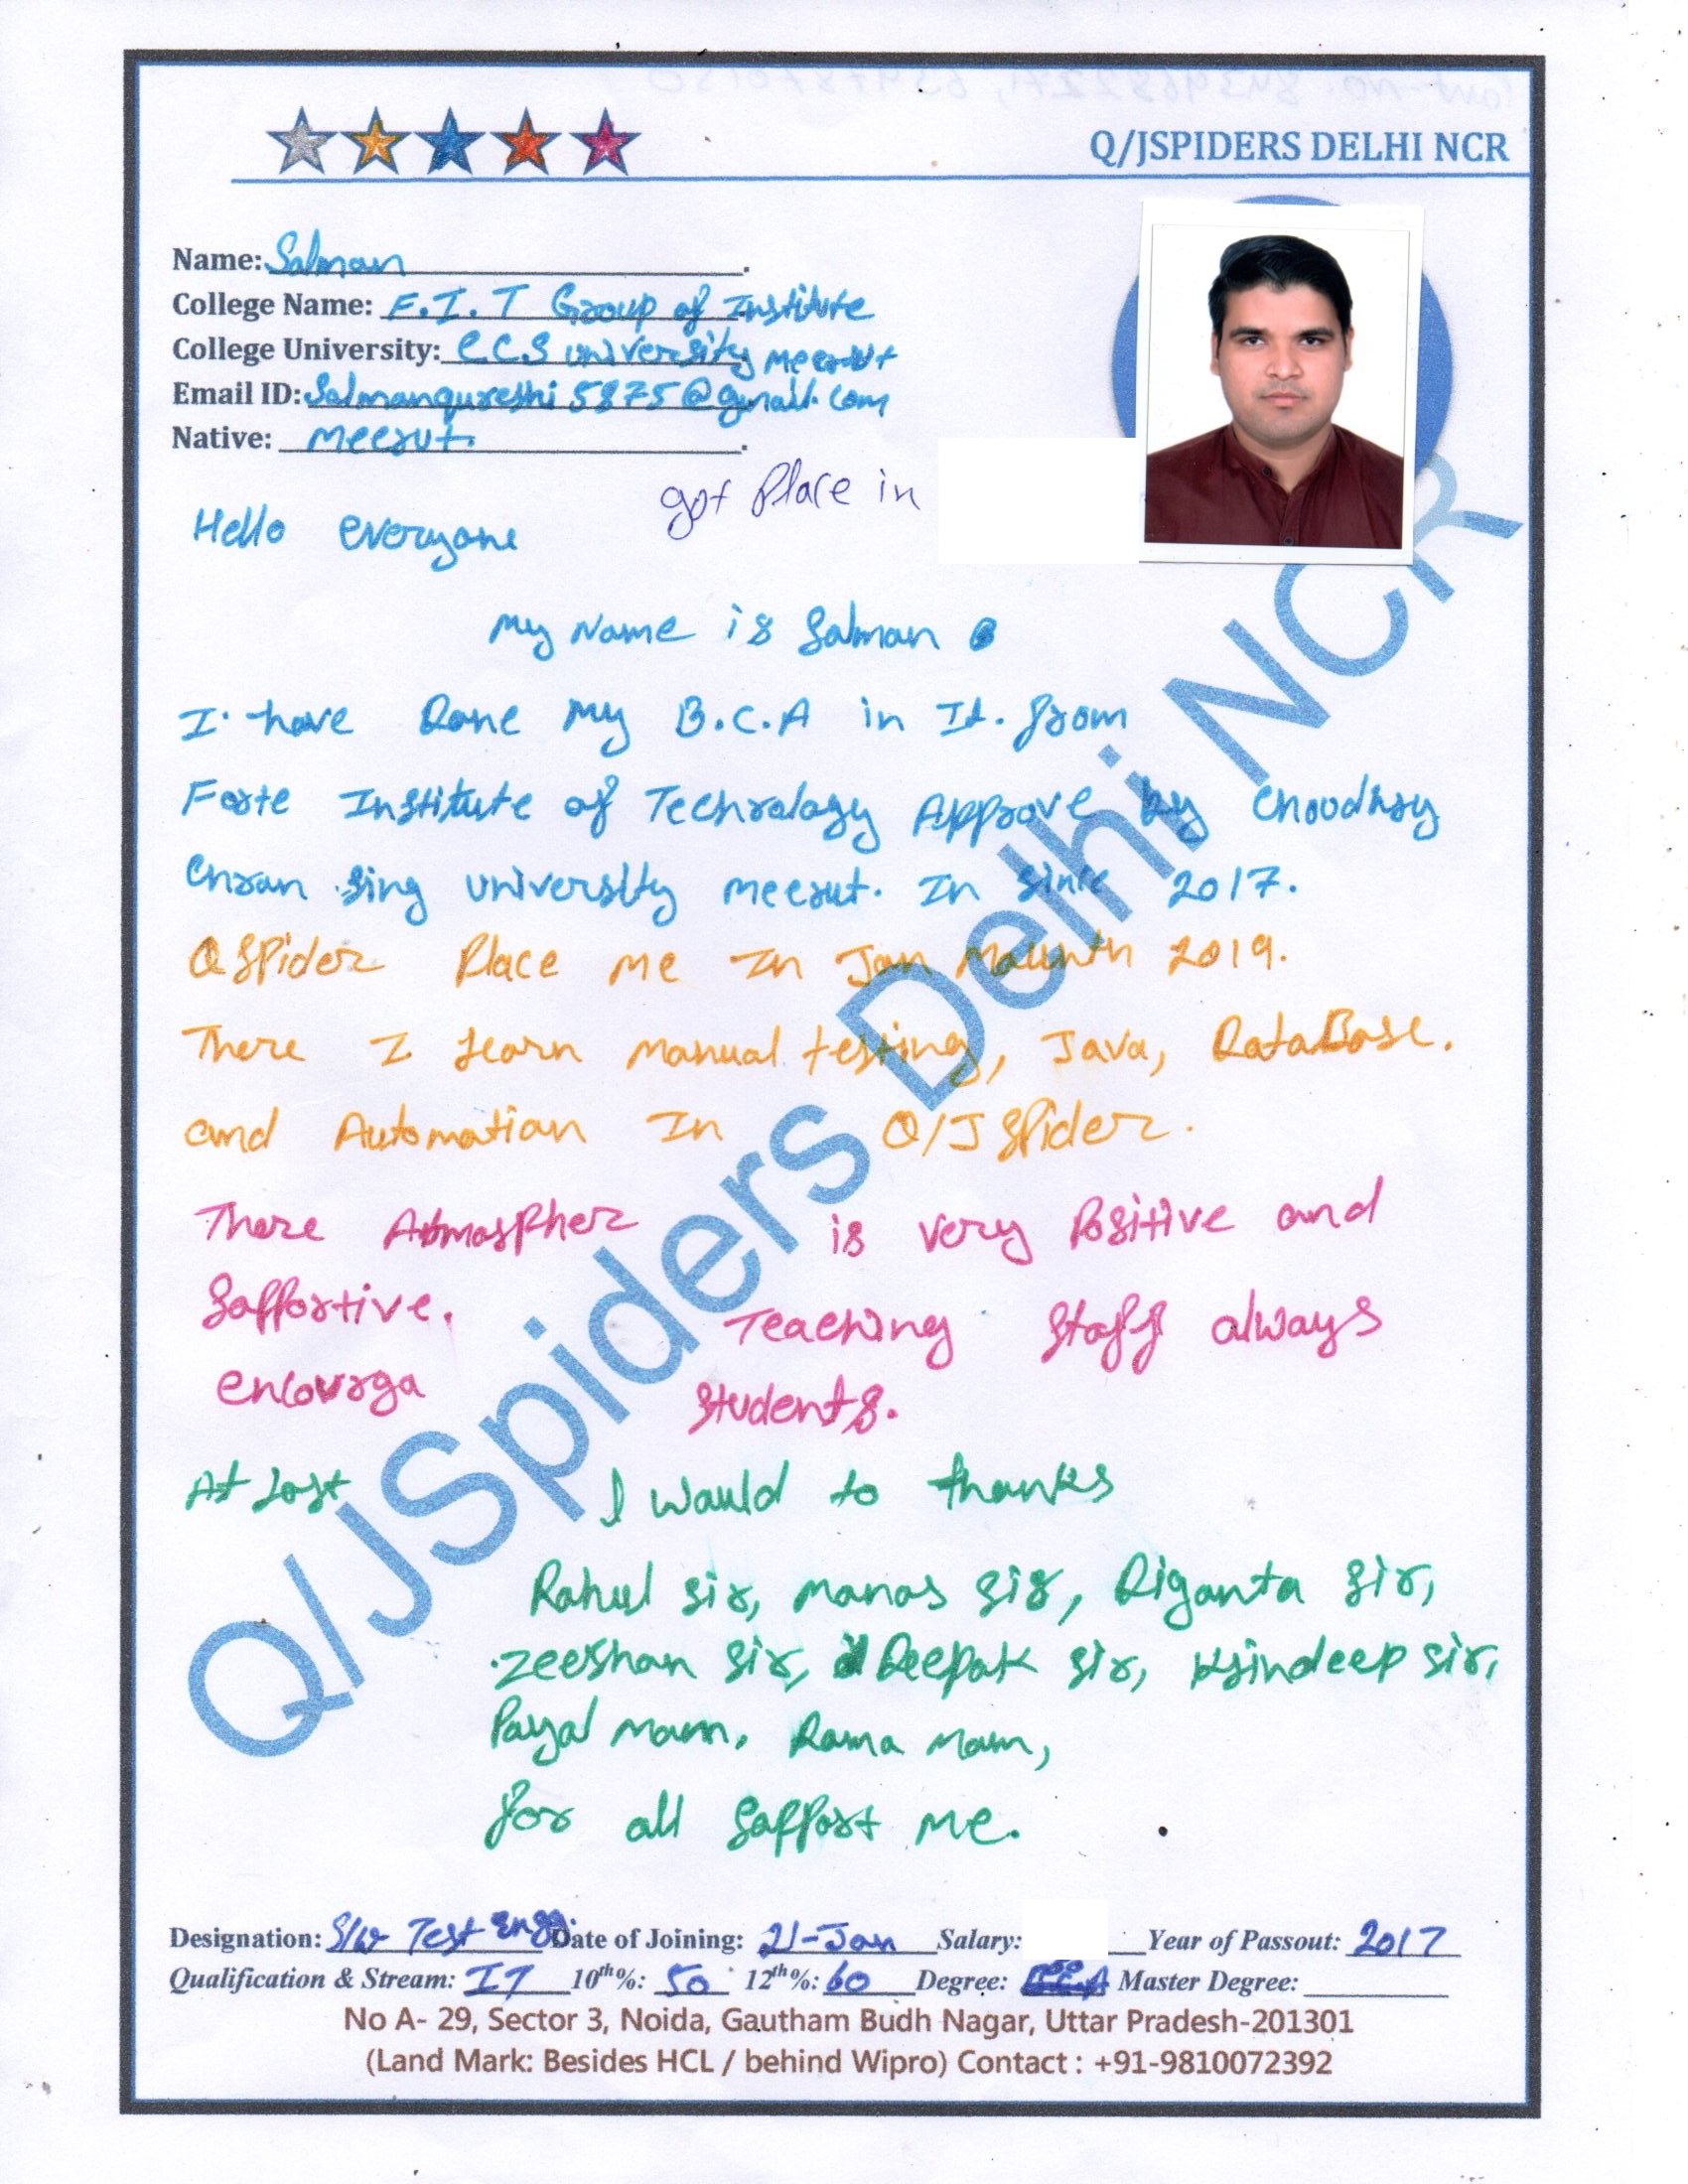 Q/JSPIDERS DELHI NCR
Name: Salman
College Name: F.I.T Group of Institute
College University: C.C.S University Meerut
Email ID: Salmanqureshi5875@gmail.com
Native: Meerut.
got Place in
Hello everyone
My Name is Salman
I have Done My B.C.A in It. from
Forte Institute of Technology Approve by Choudhry
Chran Sing University Meerut. In Since 2017.
QSpider Place me In Jan Mounth 2019.
There I learn Manual testing, Java, DataBase.
and Automation In Q/J Spider.
There Atmospher is very Positive and
Saffortive. Teaching Staff always
encourga Students.
At Last I Would to thanks
Rahul Sir, Manas Sir, Diganta Sir,
Zeeshan Sir, Deepak Sir, Sir,
Payal Mam, Rama Mam,
for all Saffort me.
Q/JSpiders Delhi NCR
Designation: S/w Test Engg. Date of Joining: 21-Jan Salary: Year of Passout: 2017
Qualification & Stream: IT 10th%: 50 12th%: 60 Degree: Master Degree:
No A- 29, Sector 3, Noida, Gautham Budh Nagar, Uttar Pradesh-201301
(Land Mark: Besides HCL / behind Wipro) Contact : +91-9810072392